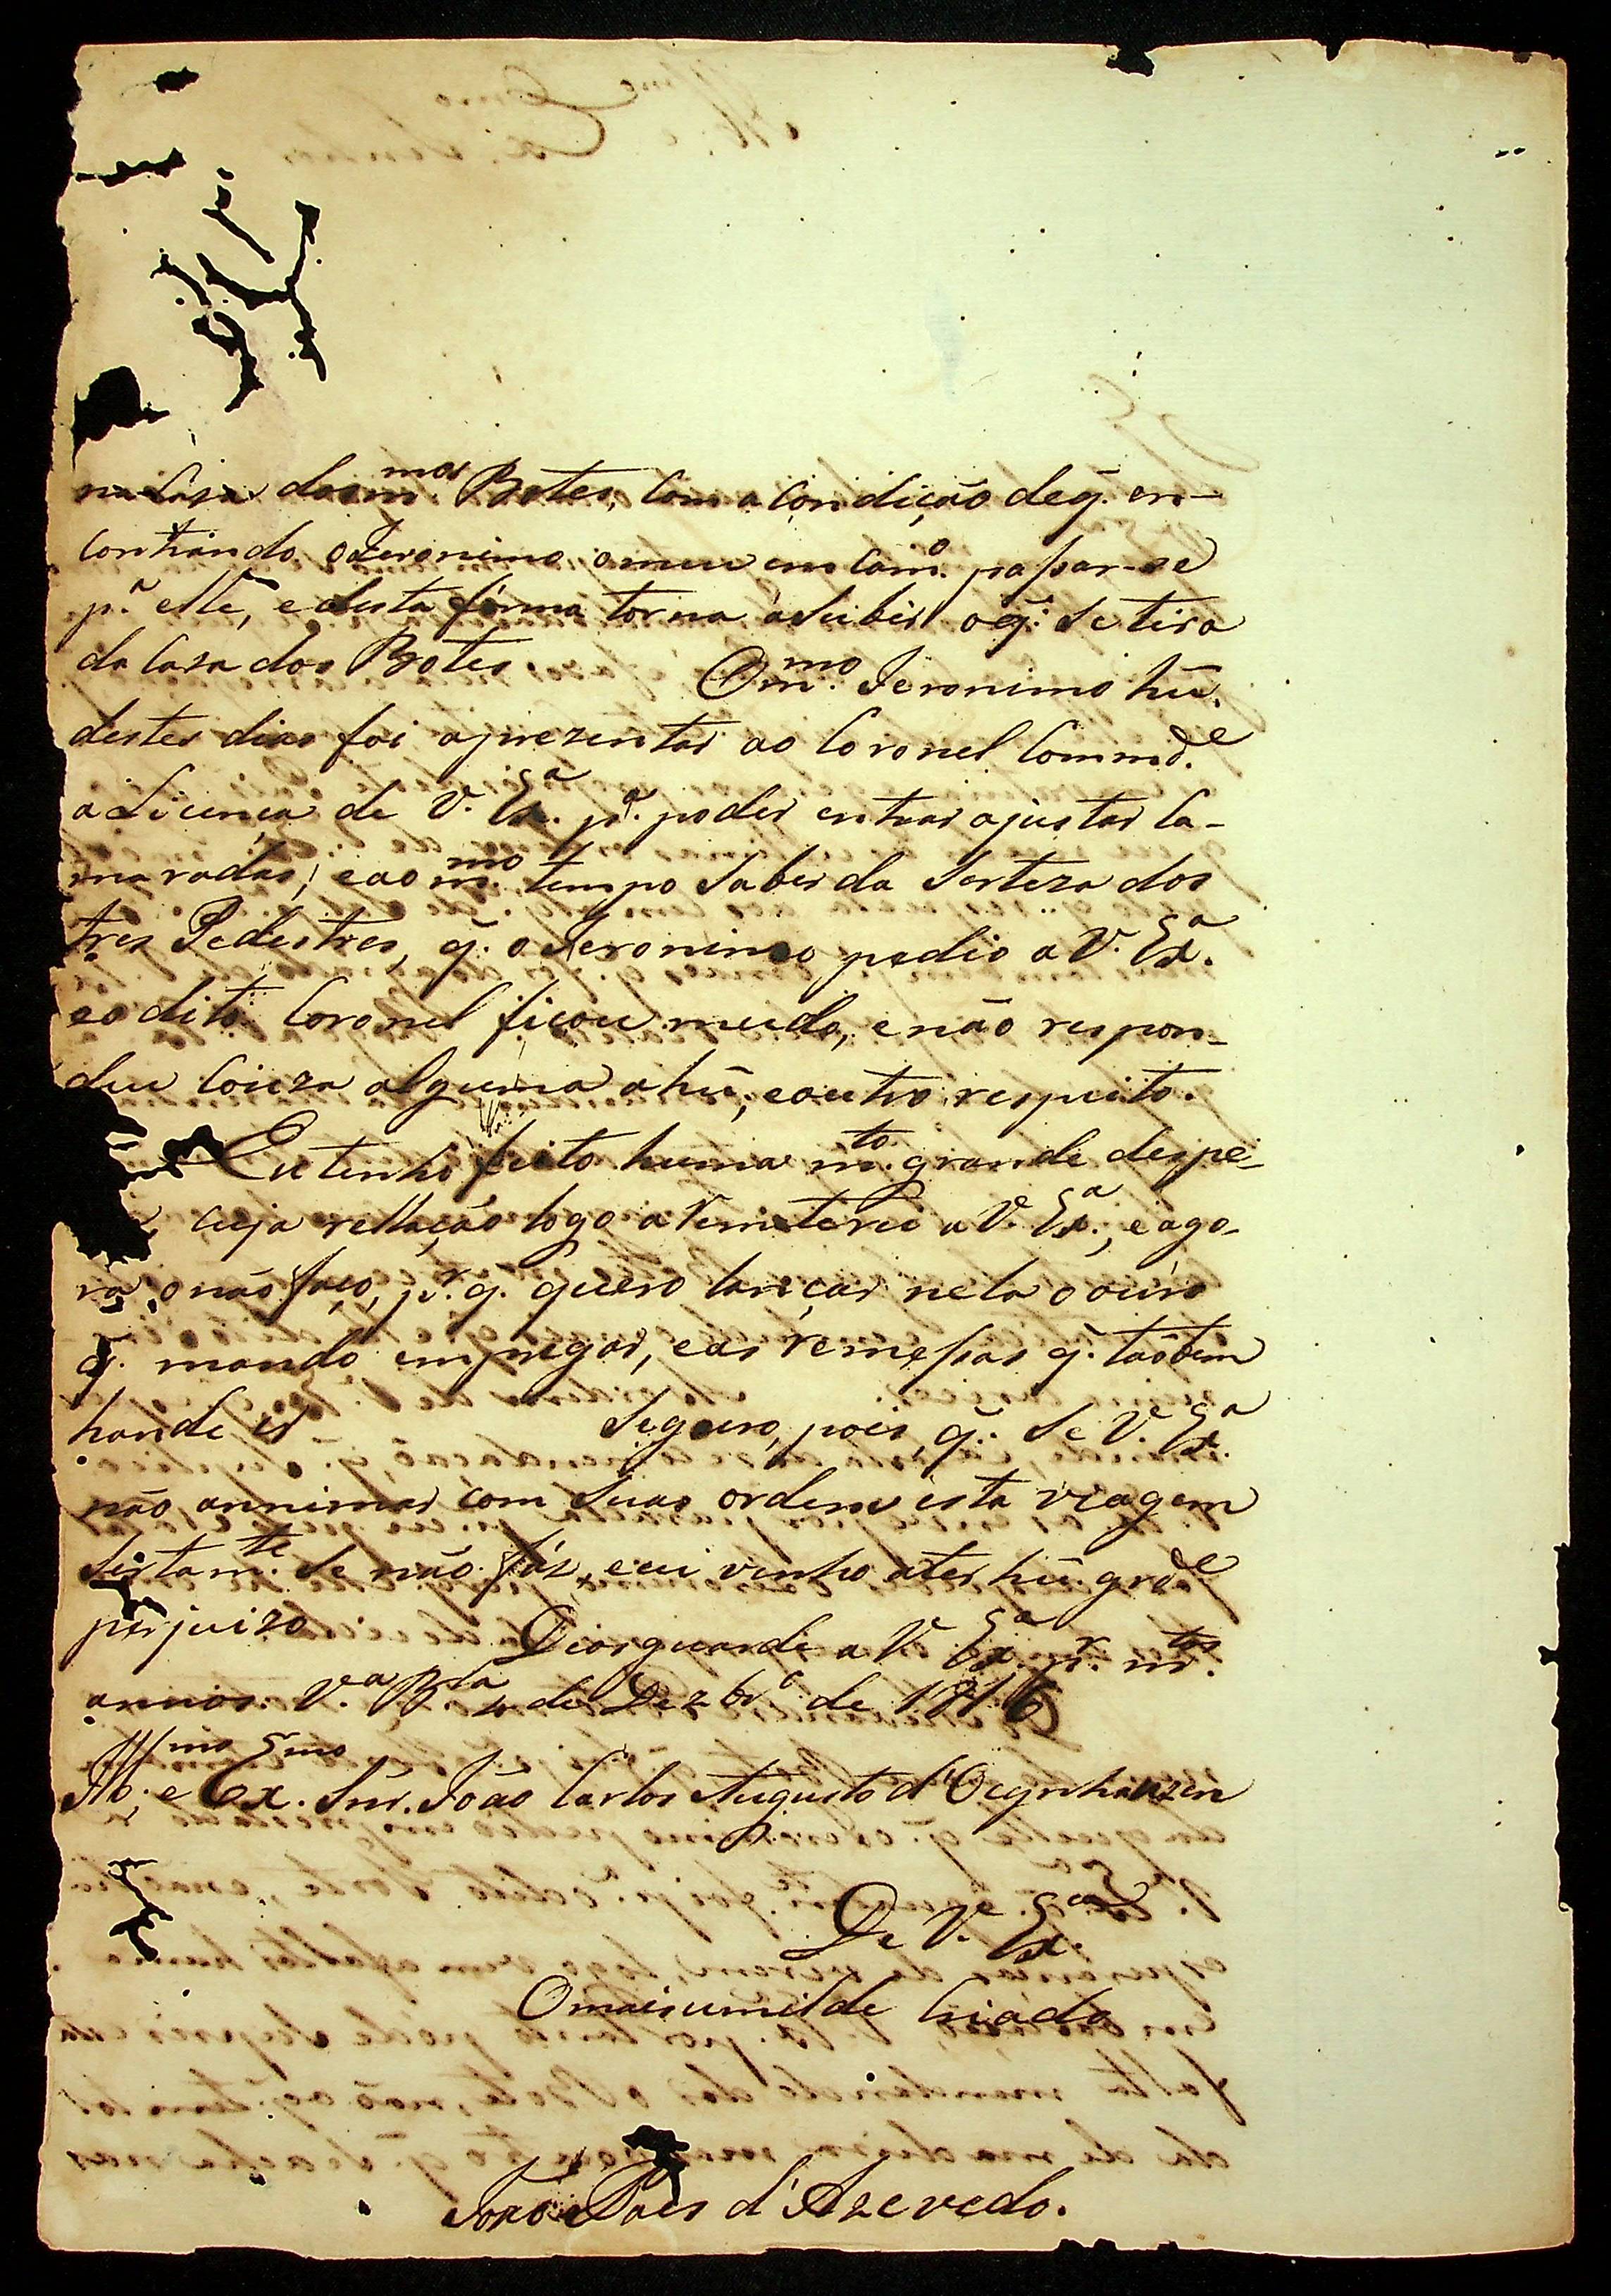 na Casa dos m.mos Botes, com a condição de q̃. en-
contrando o Jeronimo o meu em cam.o passar-se
p.a elle, e desta fórma torna a Subir o q̃. Se tira
da Casa dos Botes. O m.mo Jeronimo hũ
destes dias foi aprezentar ao Coronel Commd.e
a Licença de V. Ex.a p.a poder entrar ajustar Ca-
maradas; e ao m.mo tempo Saber da Serteza dos
tres Pedestres, q̃. o Jeronimo pedio a V. Ex.a
e o dito Coronel ficou mudo, e não respon-
deu Couza alguma a hũ, e outro respeito.
Eu tenho feito huma m.to grande despe-
cuja rellação logo a remeterei a V. Ex.a, e ago-
ra o não faço, p.r q̃. quero lançar nela o ouro
q̃. mando empregar, e as remessas q̃. taõbem
hande ir Seguro, pois, q̃. Se V. Ex.a
não annimar com Suas ordens esta viagem
Sertam.te Se não fáz, e eu venho a ter hũ grd.e
perjuizo Deos guarde a V. Ex.a p.r m.tos
annos. V.a B.la 4 de Dezbr.o de 1816
Ill.mo e Ex.mo Snr. João Carlos Augusto d'Oeynhauzen
De V. Ex.a
O mais umilde Criado
João Paes d'Azevedo.